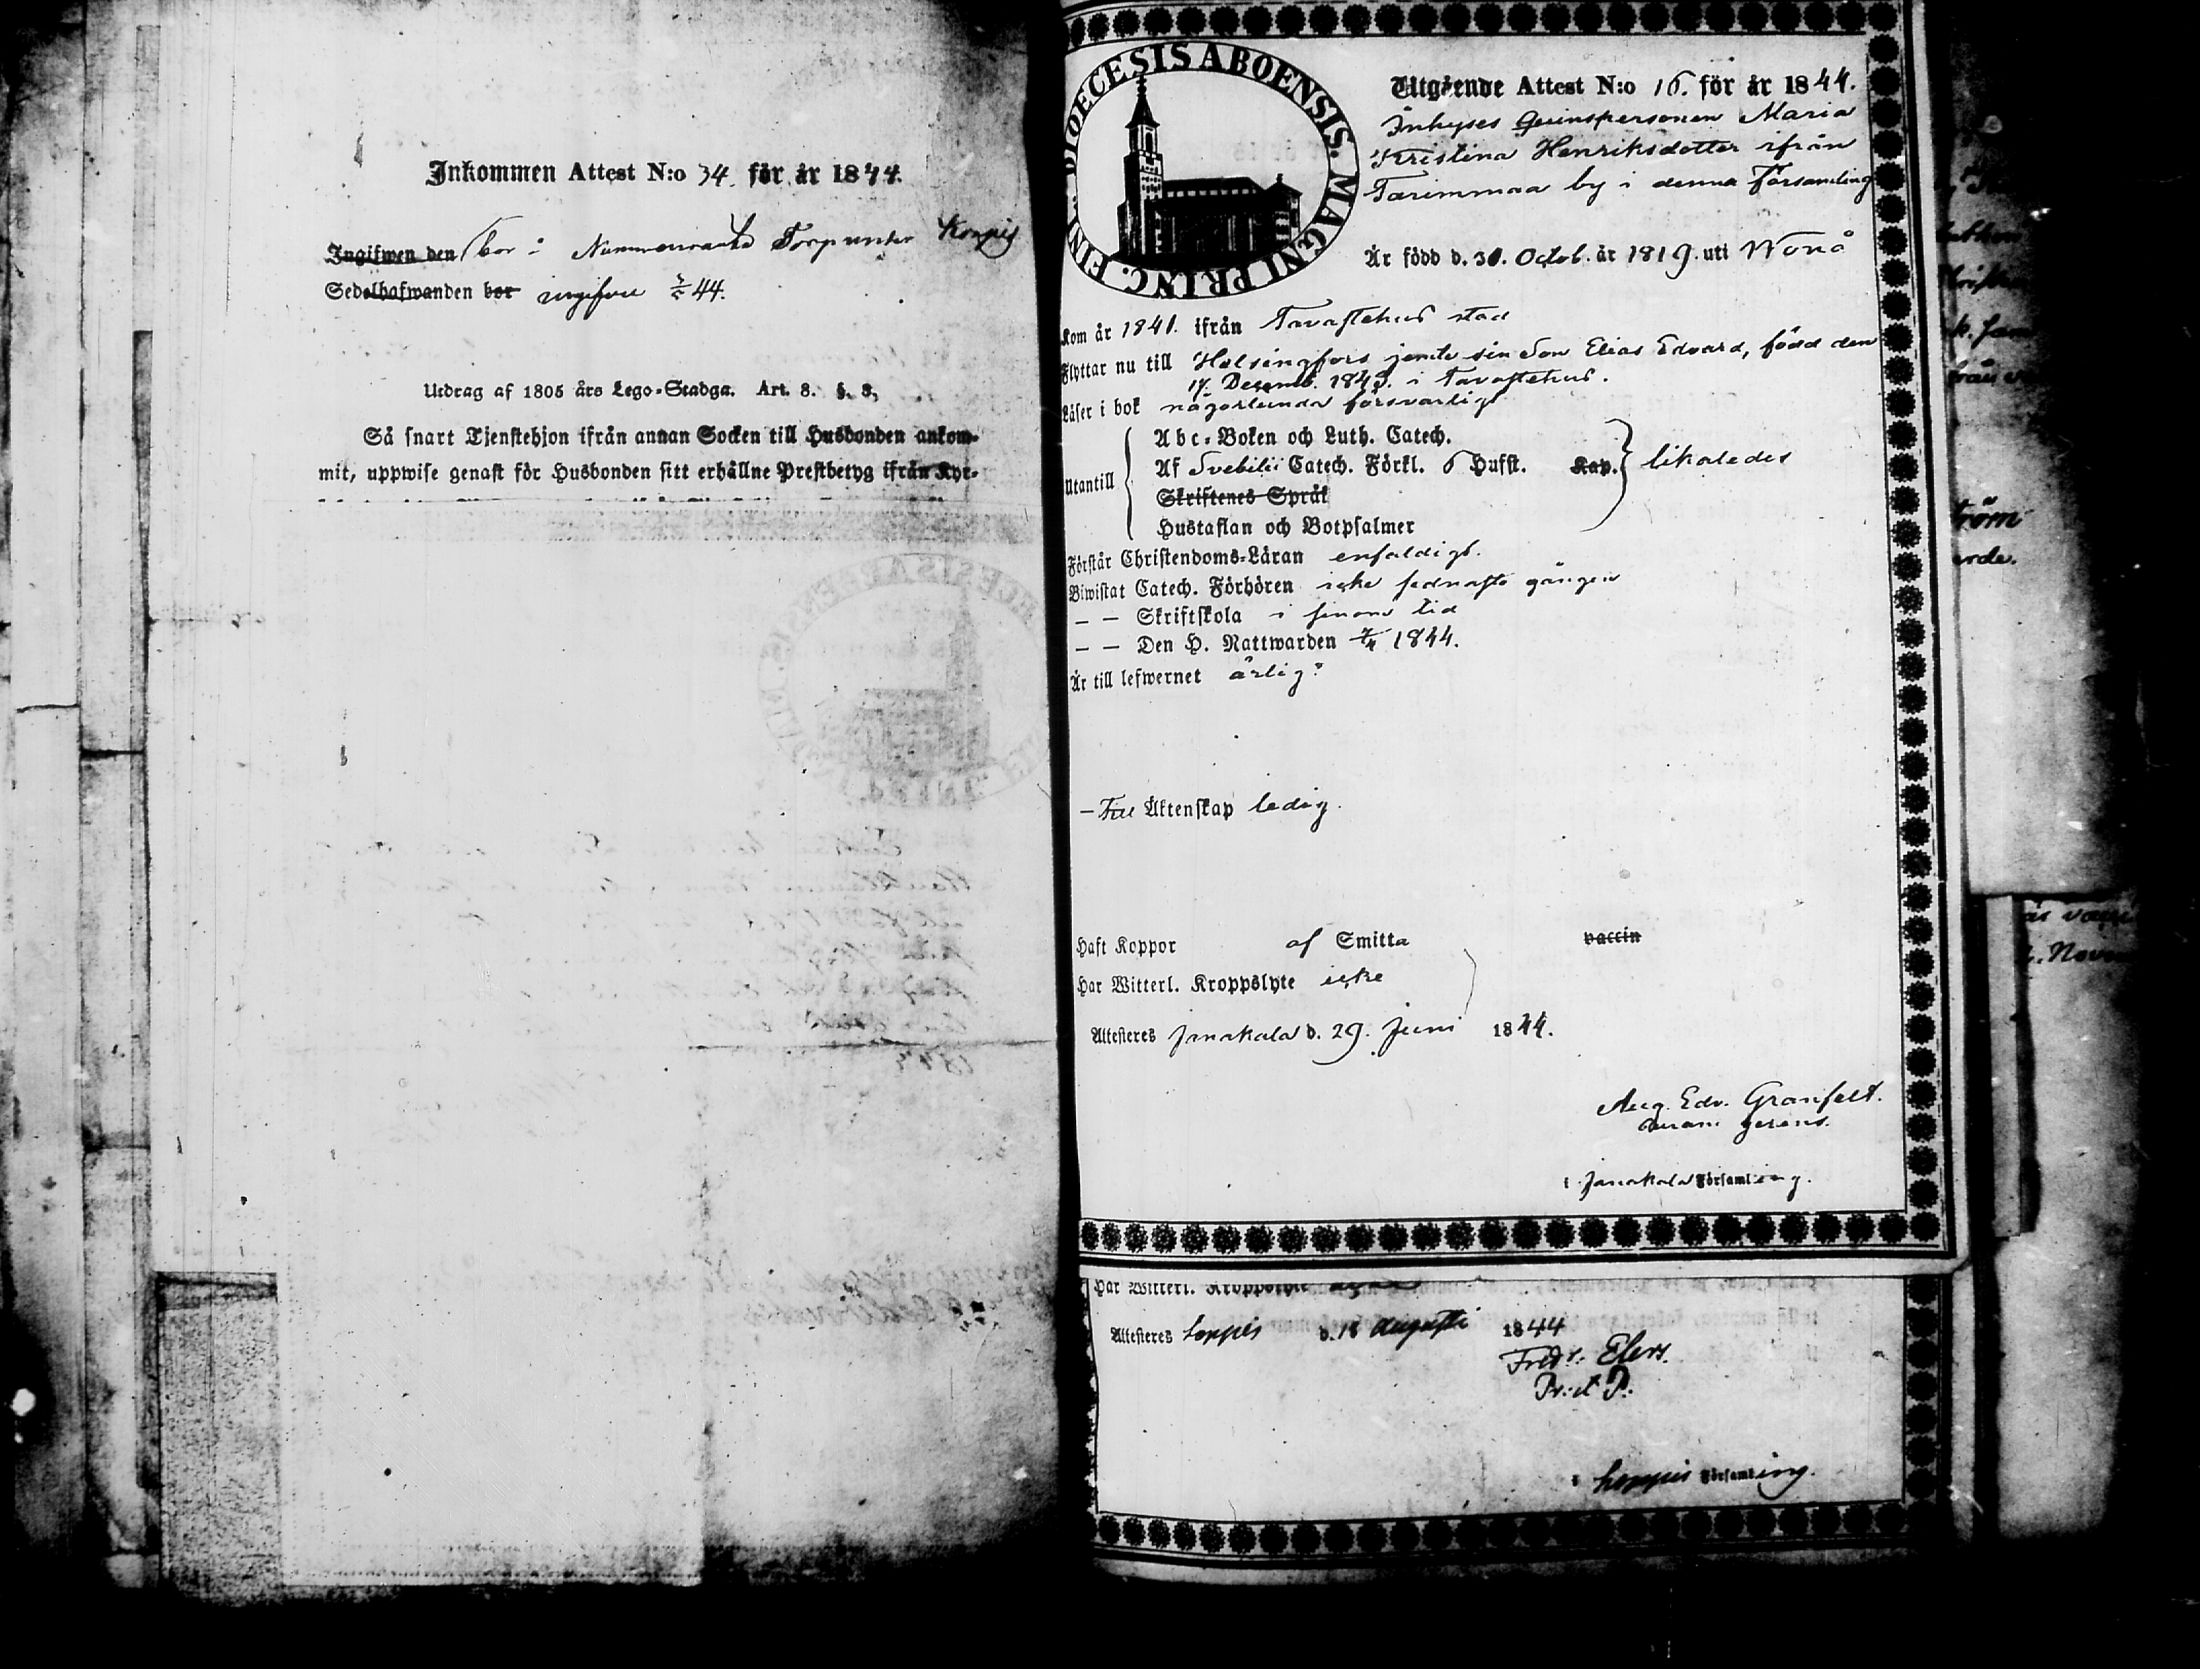 Inkommen Attest N:o 34. för år 1844.
Ingifwen den bor i Torp under
Sedelhafwanden bor ingifven 44.
Utdrag af 1805 års Lego-Stadga. Art. 8. §. 3,
Så snart Tjenstehjon ifrån annan Socken till Husbonden ankom-
mit, uppwise genast för Husbonden sitt erhållne Prestbetyg ifrån Kyr-
DIOECESIS ABOENSIS. MAGNI PRINC. FINL.
Utgående Attest N:o 16. för år 1844.
Inhyses Qvinspersonen Maria
Kristina Henriksdotter ifrån
Tarimmaa by i denna Församling
Är född d. 30. Octob. år 1819. uti Wånå
Kom år 1841. ifrån Tavastehus stad
Flyttar nu till Helsingfors jemte sin Son Elias Edvard, född den
17. Decemb. 1843. i Tavastehus.
Läser i bok någorlunda försvarligt
Utantill
Abc-Boken och Luth. Catech.
Af Svebilii Catech. Förkl. 6 Hufst. Kap. likaledes
Skriftenes Språk
Hustaflan och Botpsalmer
Förstår Christendoms-Läran enfaldigt.
Biwistat Catech. Förhören icke sednaste gången
— — Skriftskola i sinom tid
— — Den H. Nattwarden 7/4 1844.
Är till lefwernet ärlig
— Till Äktenskap ledig.
Haft Koppor af Smitta vaccin
Har Witterl. Kroppslyte icke
Attesteres Janakala d. 29. Juni 1844.
Aug. Edv. Granfelt.
curam gerens.
i Janakala Församling.
Har Witterl. Kroppslyte
Attesteres Loppis d. 18 Augusti 1844
Fredr. Elers.
i Loppis Församling.